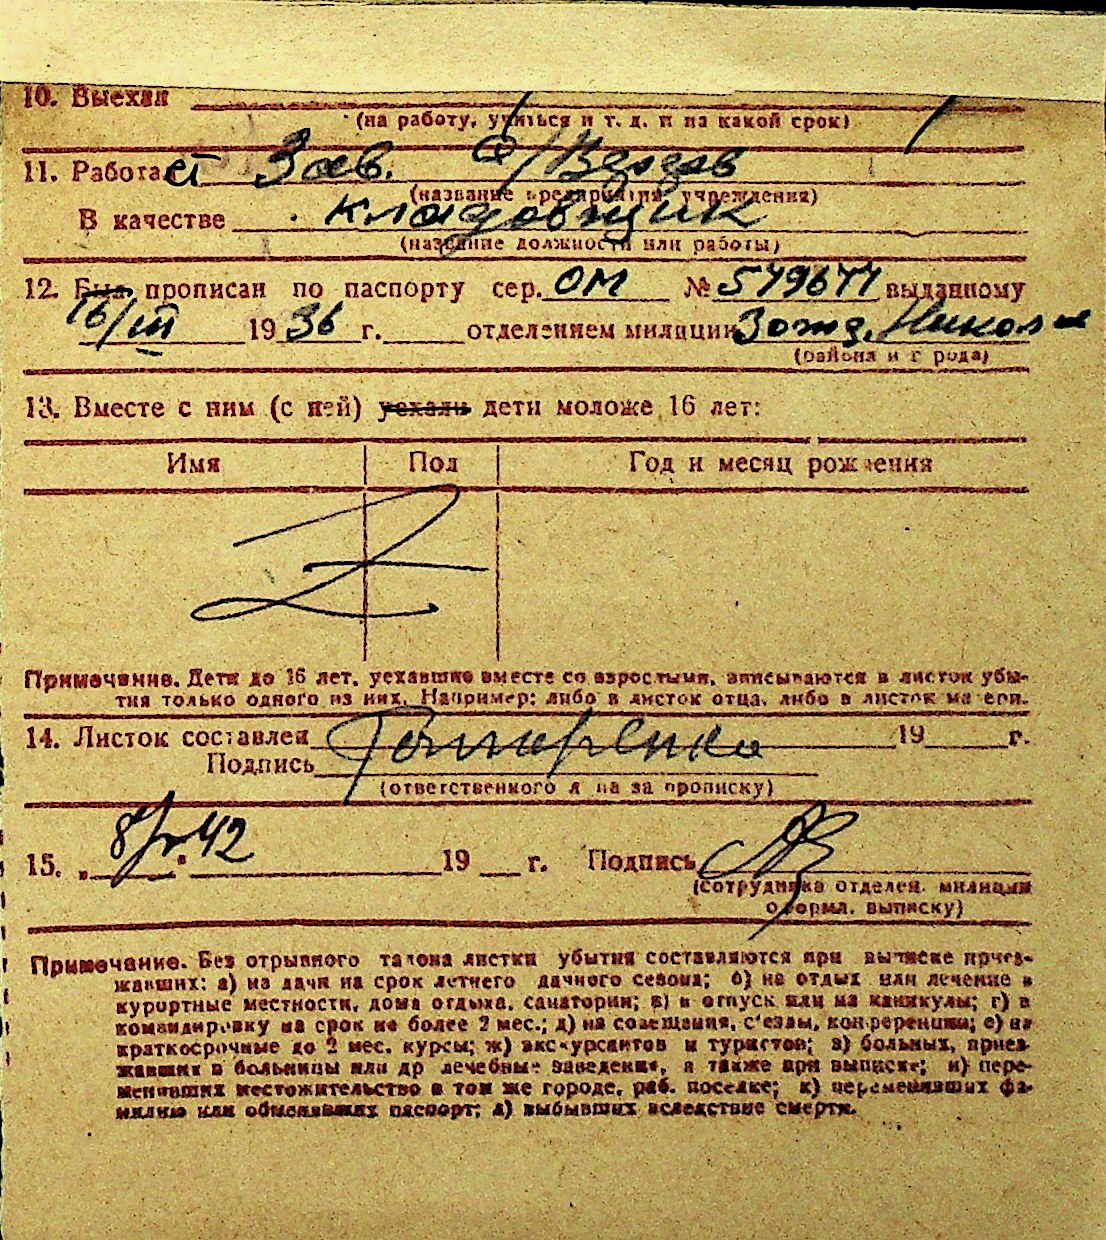 10. Выехал
(на работу, учиться и т. д. и на какой срок)
11. Работает Зав.
(название предприятия, учреждения)
В качестве кладовщик
(название должности или работы)
12. Был прописан по паспорту сер. ОМ № 579677 выданному
16/III 1936 г. отделением милиции 3 отд. Никол
(района и города)
13. Вместе с ним (с ней) уехали дети моложе 16 лет:
Имя Пол Год и месяц рождения
Примечание. Дети до 16 лет, уехавшие вместе со взрослыми, вписываются в листок убы-
тия только одного из них. Например: либо в листок отца, либо в листок матери.
14. Листок составлен 19 г.
Подпись Гончаренко
(ответственного лица за прописку)
15. „ 8/ " 42 19 г. Подпись
(сотрудника отделен. милиции
оформл. выписку)
Примечание. Без отрывного талона листки убытия составляются при выписке приез-
жавших: а) из дачи на срок летнего дачного сезона; б) на отдых или лечение в
курортные местности, дома отдыха, санатории; в) в отпуск или на каникулы; г) в
командировку на срок не более 2 мес.; д) на совещания, с'езды, конференции; е) на
краткосрочные до 2 мес. курсы; ж) экскурсантов и туристов; з) больных, приез-
жавших в больницы или др лечебные заведения, а также при выписке; и) пере-
менивших местожительство в том же городе, раб. поселке; к) переменивших фа-
милию или обменявших паспорт; л) выбывших вследствие смерти.